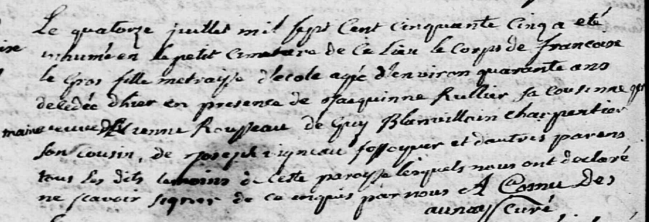 Le quatorze juillet mil sept Cent Cinquante Cinq a eté
inhumé en le petit Cimetiere de Ce Lieu le Corps de francoise
le Gros fille metraisse d'ecole agé d'environ quarante ans
decedée d'hier en presence de Jacquinne Rullier sa Cousinne
maine veuve d'Etienne Rousseau de Guy Blanvillain Charpentier
son Cousin, de Joseph vigneau fossoyeur et d'autres parens
tous les dits temoins de Cette paroisse lesquels nous ont declaré
ne scavoir signer de Ce enquis par nous A Cornu Des
aunays Curé